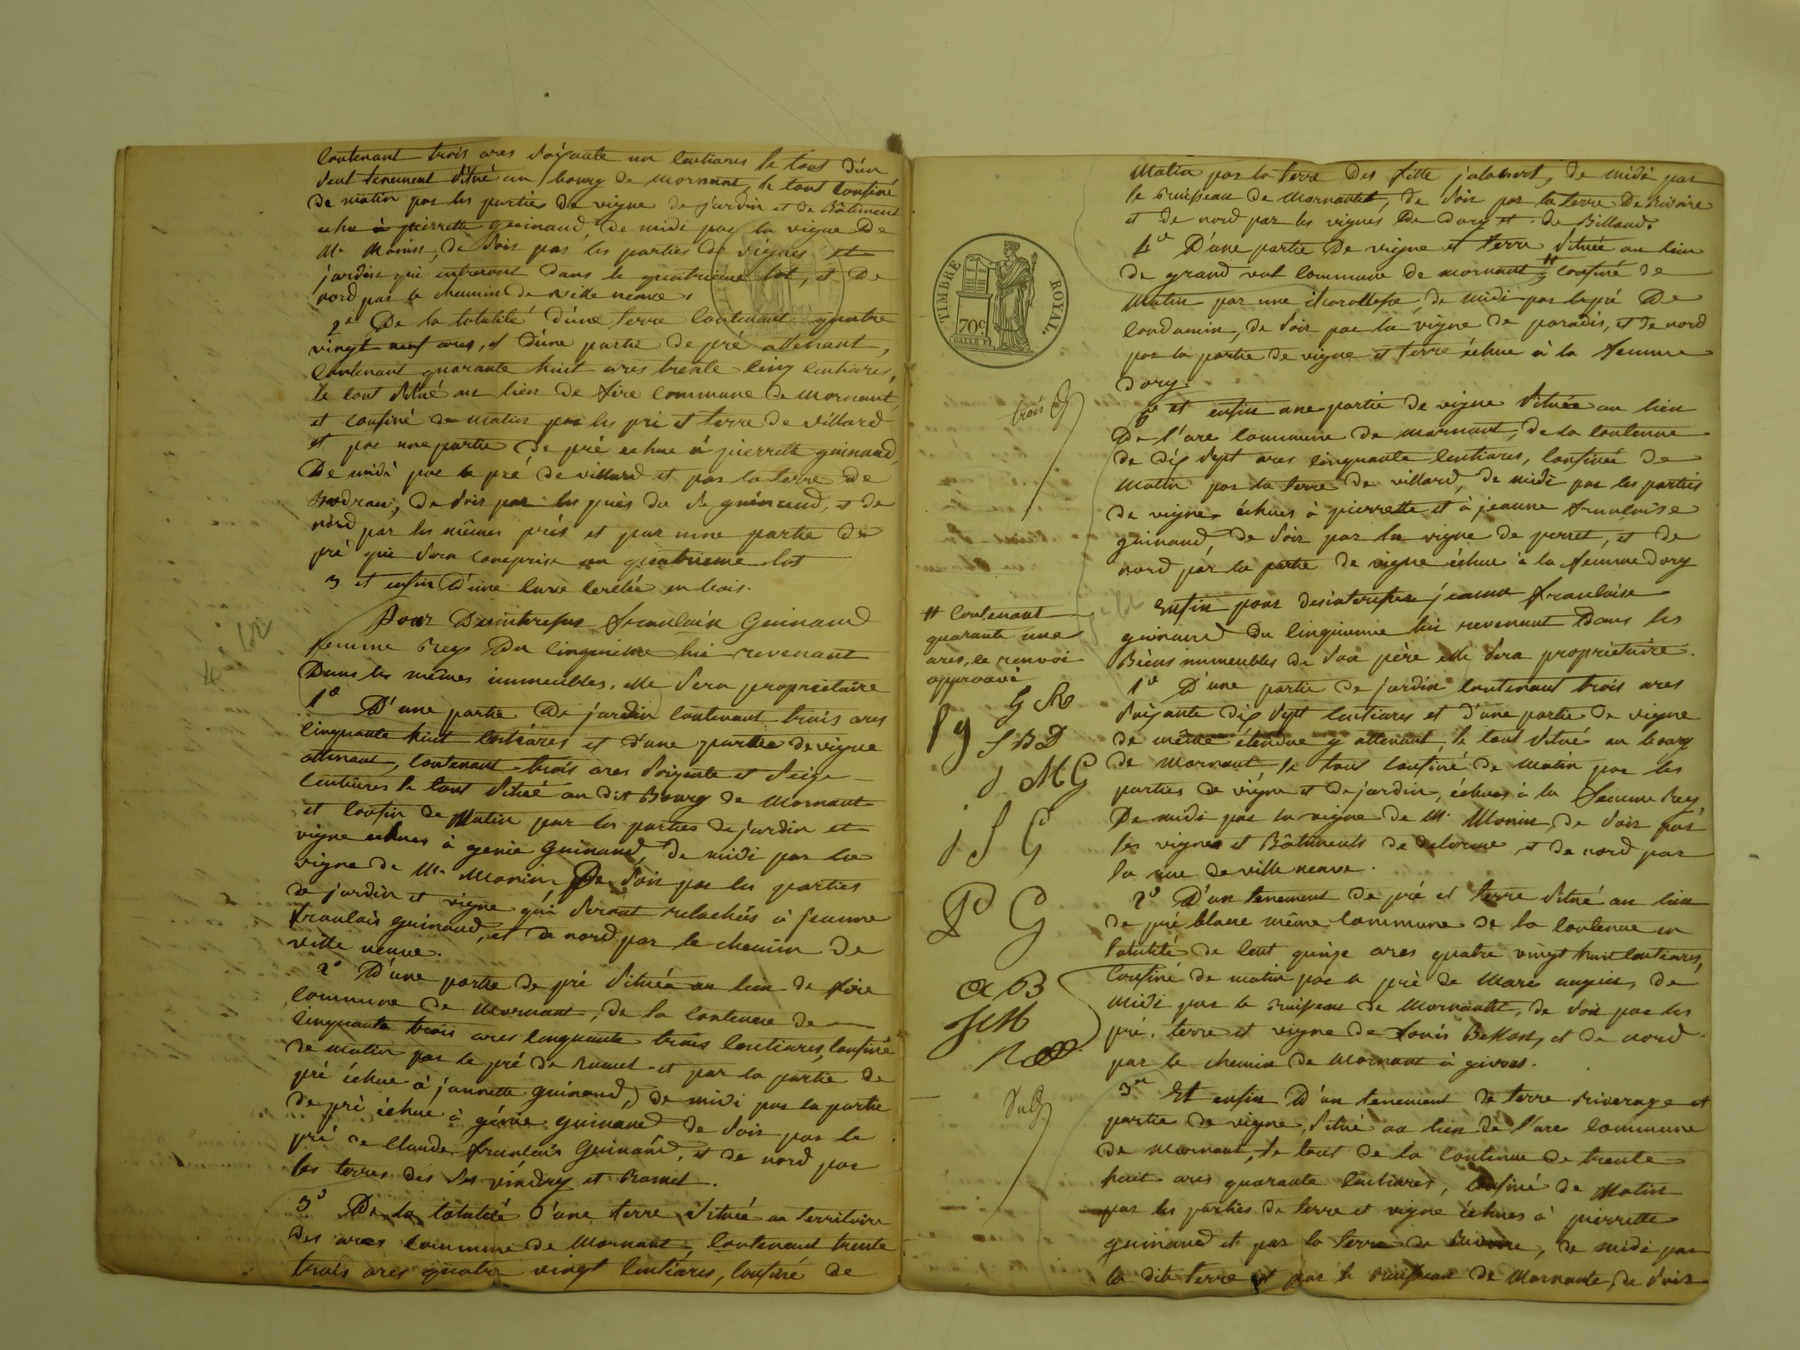 Contenant trois ares soixante un centiares le tout d'un
seul tenement situé au bourg de mornant, le tout confiné
de matin par les parties de vigne de jardin et de Bâtiment
echue à pierrette guinand, de midi par la vigne De
Mr Monin, de soir par les parties de vignes et
jardin qui entreront dans le quatrième lot, et De
nord par le chemin de ville neuve.
2° De la totalité d'une terre Contenant quatre
vingt neuf ares, et d'une partie de pré attenant,
Contenant quarante huit ares trente cinq centiares,
le tout situé au lieu de fire commune de Mornant,
et confiné de matin par les pré et terre de villard
et par une partie de pré echue à pierrette guinand,
De midi par le pré de villard et par la terre de
de soir par les près du Sr guinand, et de
nord par les mêmes prés et par une partie de
pré qui sera comprise au quatrieme lot
3 et enfin D'une cuve cerclée en bois.
Pour Desinteresser francoise Guinand
femme Rey Du cinquieme lui revenant
Dans les mêmes immeubles, elle sera propriétaire
1° D'une partie De jardin contenant trois ares
cinquante huit centiares et d'une partie de vigne
attenant, contenant trois ares soixante et seize
centiares le tout situé au dit Bourg de Mornant
et confin de Matin par les parties de jardin et
vigne echues à genie guinand, de midi par la
vigne de Mr Monin, De soir par les parties
de jardin et vigne qui seront relachées à jeanne
francoise guinand, et de nord par le chemin de
ville neuve.
2° D'une partie de pré située au lieu de fire
commune de Mornant, de la contenue de
cinquante trois ares cinquante trois centiares, confiné
de matin par le pré de et par la partie de
pré échue à jannette guinand, de midi par la partie
de pré échue à génie guinand de soir par le
pré de Claude francois Guinand, et de nord par
les terres des Srs et
3° De la totalité d'une terre située au territoire
des arcs commune de Mornant, contenant trente
trois ares quatre vingt centiares, confiné de
Matin par la terre Des jalabert, de midi par
le Ruisseau de Mornantet, de soir par la terre De Rivoire
et de nord par les vignes de dory et de Billand.
4° D'une partie De vigne et terre située au lieu
de grand val commune de mornant # confiné de
Matin par une de midi par le pré De
Condamin, de soir par la vigne de paradis, et de nord
par la partie de vigne et terre échue à la femme
dory.
5° et enfin une partie de vigne située au lieu
De l'arc commune de mornant, de la contenue
de dix sept ares cinquante centiares, confinée de
Matin par la terre de villard, de midi par les parties
de vigne échues à pierrette et à jeanne francoise
guinand, de soir par la vigne de perret, et de
nord par la partie de vigne échue à la femme dory
Enfin pour desinteresser jeanne francoise
guinand du cinquieme lui revenant Dans les
Biens immeubles de son père elle sera propriétaire.
1° D'une partie de jardin contenant trois ares
soixante dix sept centiares et d'une partie de vigne
de même étendue y attenant, le tout situé au bourg
de Mornant, le tout confiné de Matin par les
parties de vigne et de jardin, échues à la femme Rey,
De midi par la vigne de Mr Monin, de soir par
les vignes et Bâtiments de delorme, et de nord par
la rue de ville neuve.
2° D'un tenement de pré et terre situé au lieu
de pré blanc même commune de la contenue en
totalité de cent quinze ares quatre vingt huit centiares,
Confiné de matin par le pré de Marc de
midi par le Ruisseau de Mornantet, de soir par les
pré, terre et vigne de Louis et de nord
par le chemin de Mornant à givors.
3° Et enfin D'un tenement de terre riverage et
partie de vigne, situé au lieu de l'arc commune
de Mornant, le tout de la contenue de trente
huit ares quarante centiares, confiné de Matin
par les parties de terre et vigne échues à pierrette
guinand et par la terre de Rivoire, de midi par
la dite terre et par le ruisseau de Mornantet, de soir
TIMBRE ROYAL
70c
trois
# Contenant
quarante une
ares, le renvoi
approuvé
G R
S B D
J M G
j S G
P G